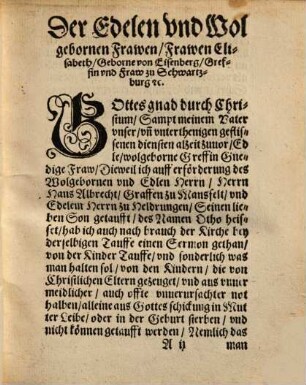 Der Edelen vnd Wol
gebornen Frawen/Frawen Eli-
sabeth/Geborne von Eisenberg/Gref-
fin vnd Fraw zu Schwartz-
burg ꝛc.
GOttes gnad durch Chri-
stum/Sampt meinem Vater
vnser/vn̄ vnterthenigen geflis-
senen diensten alzeit zuuor/Ed
le/wolgeborne Greffin Gne-
dige Fraw/Dieweil ich auff erförderung des
Wolgebornen vnd Edlen Herrn/Herrn
Hans Albrecht/Graffen zu Mansfelt/vnd
Edelem Herrn zu Heldrungen/Seinen lie-
ben Son getaufft/des Namen Otho heis-
set/hab ich auch nach brauch der Kirche bey
derselbigen Tauffe einen Sermon gethan/
von der Kinder Tauffe/vnd sonderlich was
man halten sol/von den Kindern/die von
Christlichen Eltern gezeuget/vnd aus vnuer
meidlicher/auch offte vnuerursachter not
halben/alleine aus Gottes schickung in Mut
ter Leibe/oder in der Geburt sterben/vnd
nicht können getaufft werden/Nemlich das
A ij man